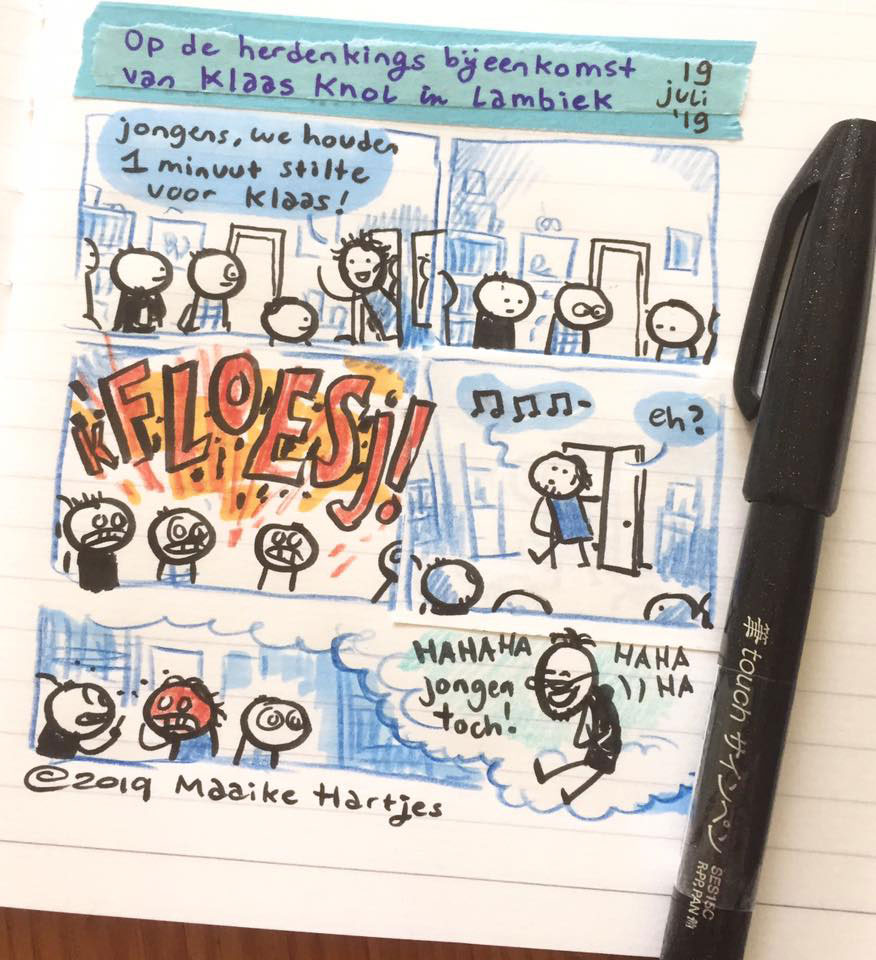 Op de herdenkings bijeenkomst
van Klaas Knol in Lambiek
19
juli
'19
jongens, we houden
1 minuut stilte
voor Klaas!
KFLOESJ!
eh?
HAHAHA
jongen
toch!
HAHA
HA
©2019 Maaike Hartjes
筆touch サインペン
SES15C